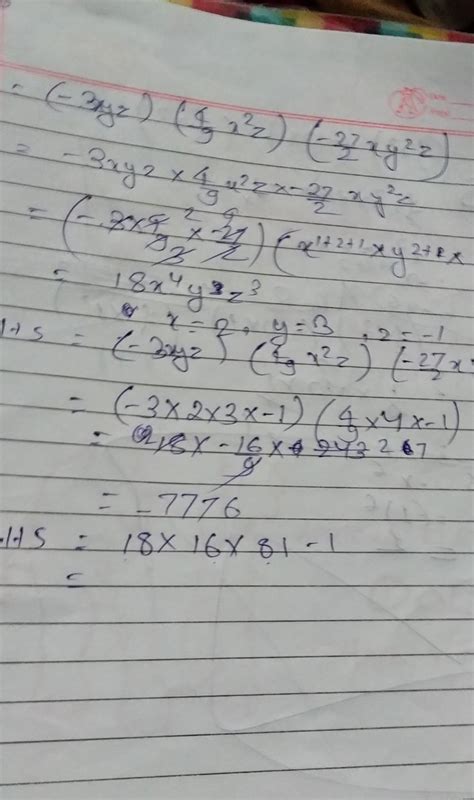 = (-3xyz) (4/9 x²z) (-27/2 xy²z)
= -3xyz × 4/9 x²z × -27/2 xy²z
= (-3×4/9 × -27/2) (x¹⁺²⁺¹ × y²⁺
= 18x⁴y³z³
x = 2, y = 3, z = -1
HS = (-3xyz) (4/9 x²z) (-27/2 x
= (-3×2×3×-1) (4/9 ×4×-1)
= 18× -16/9 ×
= -7776
HS = 18×16×81-1
=